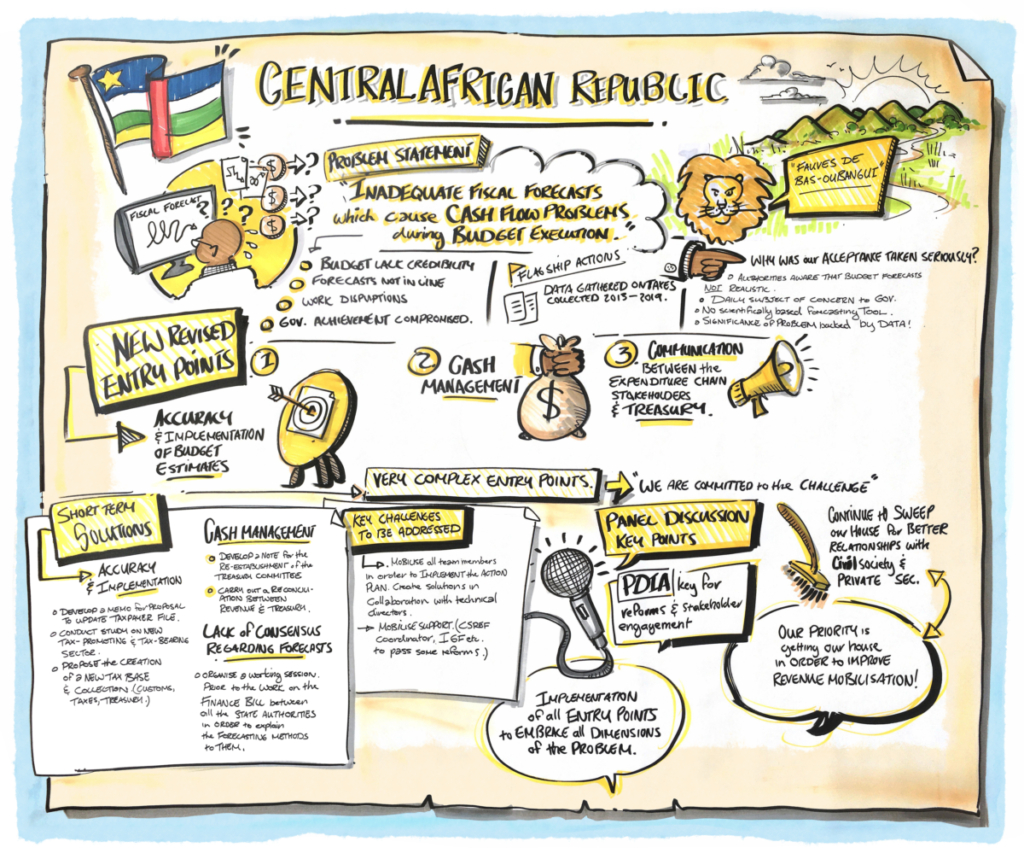 CENTRAL AFRICAN REPUBLIC
PROBLEM STATEMENT
"INADEQUATE FISCAL FORECASTS
which cause CASH FLOW PROBLEMS
during BUDGET EXECUTION."
FISCAL FORECAST
?
?
?
?
?
?
$
$
$
"FAUVES DE
BAS-OUBANGUI"
BUDGET LACK CREDIBILITY
FORECASTS NOT IN LINE
WORK DISRUPTIONS
GOV. ACHIEVEMENT COMPROMISED.
FLAGSHIP ACTIONS
DATA GATHERED ON TAXES
COLLECTED 2015-2019.
WHY WAS our ACCEPTANCE TAKEN SERIOUSLY?
AUTHORITIES AWARE THAT BUDGET FORECASTS
NOT REALISTIC.
DAILY SUBJECT OF CONCERN to GOV.
NO SCIENTIFICALLY BASED FORECASTING TOOL.
SIGNIFICANCE OF PROBLEM backed by DATA!
NEW REVISED
ENTRY POINTS
1
ACCURACY
& IMPLEMENTATION
OF BUDGET
ESTIMATES
2
CASH
MANAGEMENT
$
3
COMMUNICATION
BETWEEN the
EXPENDITURE CHAIN
STAKEHOLDERS
& TREASURY.
VERY COMPLEX ENTRY POINTS.
"WE ARE COMMITTED to the CHALLENGE"
SHORT TERM
SOLUTIONS
ACCURACY
& IMPLEMENTATION
DEVELOP a MEMO for PROPOSAL
TO UPDATE TAXPAYER FILE.
CONDUCT STUDY ON NEW
TAX-PROMOTING & TAX-BEARING
SECTOR.
PROPOSE THE CREATION
of a NEW TAX BASE
& COLLECTION (CUSTOMS,
TAXES, TREASURY.)
CASH MANAGEMENT
DEVELOP a NOTE for the
RE-ESTABLISHMENT of the
TREASURY COMMITTEE
CARRY OUT a RECONCILI-
ATION BETWEEN
REVENUE & TREASURY.
LACK of CONSENSUS
REGARDING FORECASTS
ORGANISE a working SESSION.
PRIOR to the WORK on the
FINANCE BILL between
all the STATE AUTHORITIES
in ORDER to explain
the FORECASTING METHODS
to THEM.
KEY CHALLENGES
TO BE ADDRESSED
MOBILISE all team members
in order to IMPLEMENT the ACTION
PLAN. Create solutions in
Collaboration with technical
directors.
MOBILISE SUPPORT. (CSREF
Coordinator, IGF etc.
to pass some reforms.)
PANEL DISCUSSION
KEY POINTS
PDIA key for
reforms & stakeholder
engagement
IMPLEMENTATION
of all ENTRY POINTS
to EMBRACE all DIMENSIONS
of the PROBLEM.
CONTINUE to SWEEP
our HOUSE for BETTER
RELATIONSHIPS with
Civil society &
PRIVATE SEC.
OUR PRIORITY IS
getting our house
in ORDER to IMPROVE
REVENUE MOBILISATION!